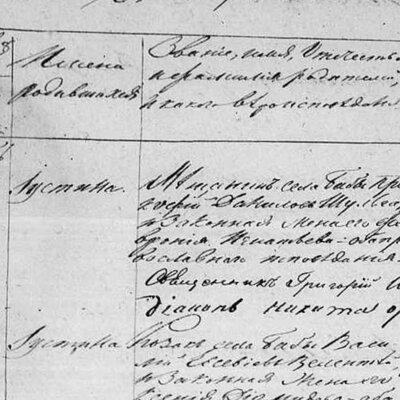 Имена
родившихся
Званіе, имя, Отчеств
и фамилія родителей,
и какого вѣроисповѣдан
Іустина.
Мѣщанинъ села Бабы Гри
горій Даниловъ
и Законная Жена его Фе
вронія Игнатьева оба пра
вославнаго исповѣданія.
Священникъ Григорій
Діаконъ Никита
Іустина
Козакъ села Бабы Васи
лій Евсевіевъ
и Законная Жена его
Ксенія оба